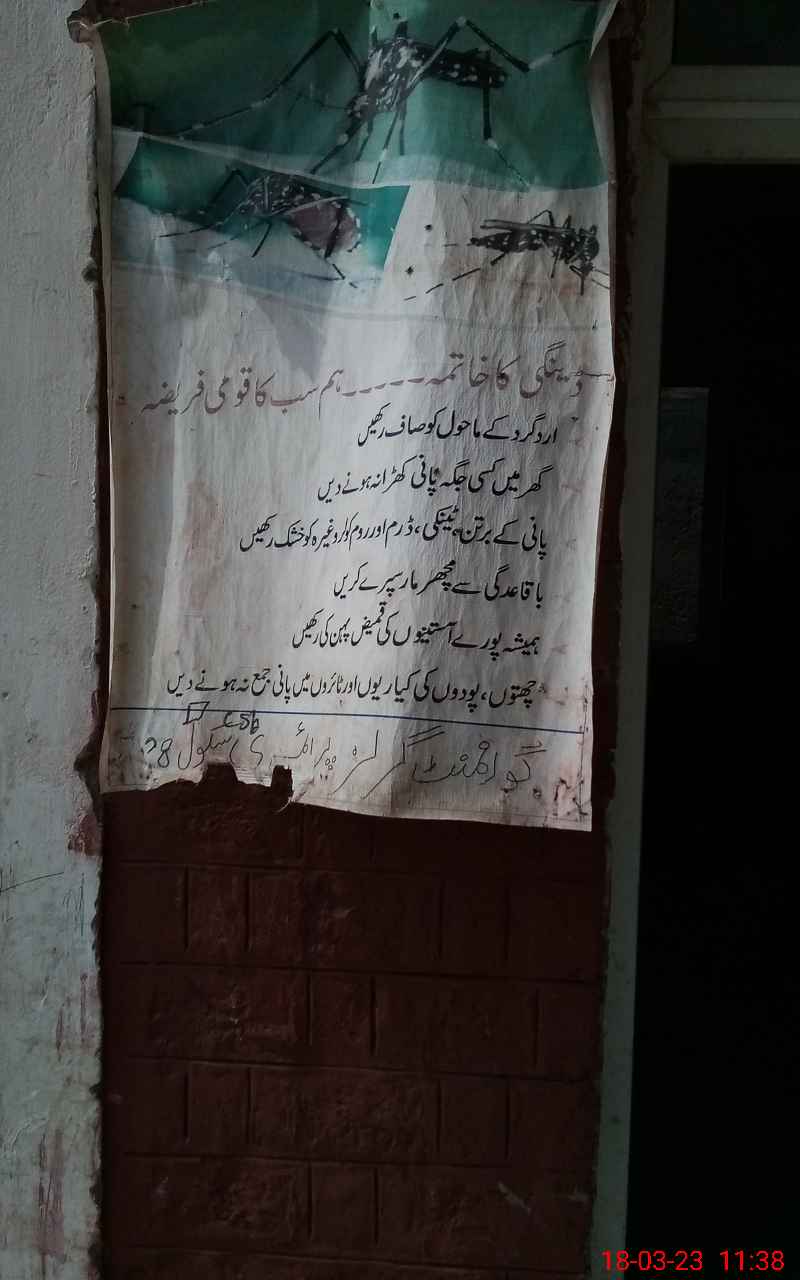 ڈینگی کا خاتمہ-----ہم سب کا قومی فریضہ
اردگرد کے ماحول کو صاف رکھیں
گھر میں کسی جگہ پانی کھڑا نہ ہونے دیں
پانی کے برتن، ٹینکی، ڈرم اور روم کولر وغیرہ کو خشک رکھیں
باقاعدگی سے مچھر مار سپرے کریں
ہمیشہ پورے آستینوں کی قمیض پہن کی رکھیں
چھتوں، پودوں کی کیاریوں اور ٹائروں میں پانی جمع نہ ہونے دیں
گورنمنٹ گرلز پرائمری سکول 28
18-03-23 11:38